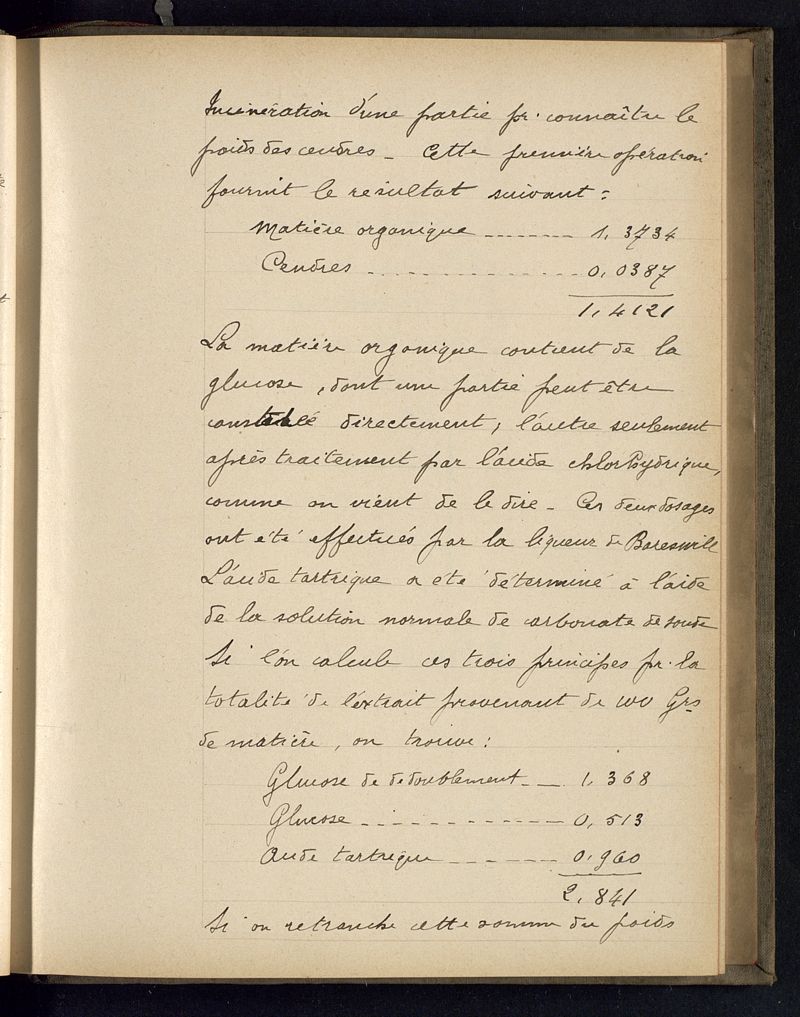 Incinération d'une partie pr. connaître le
poids des cendres _ Cette première opération
fournit le résultat suivant :
Matière organique ------- 1, 3734
Cendres ---------------- 0, 0387
1, 4121
La matière organique contient de la
glucose, dont une partie peut être
directement, l'autre seulement
après traitement par l'acide chlorhydrique,
comme on vient de le dire _ Ces deux dosages
ont été effectués par la liqueur de Bareswill
L'acide tartrique a été déterminé à l'aide
de la solution normale de carbonate de soude
Si l'on calcule ces trois principes pr. la
totalité de l'extrait provenant de 100 Grs
de matière, on trouve :
Glucose de dedoublement _ _ 1, 368
Glucose _ _ _ _ _ _ _ _ _ 0, 513
Acide tartrique _ _ _ _ _ 0, 960
2, 841
Si on retranche cette somme du poids